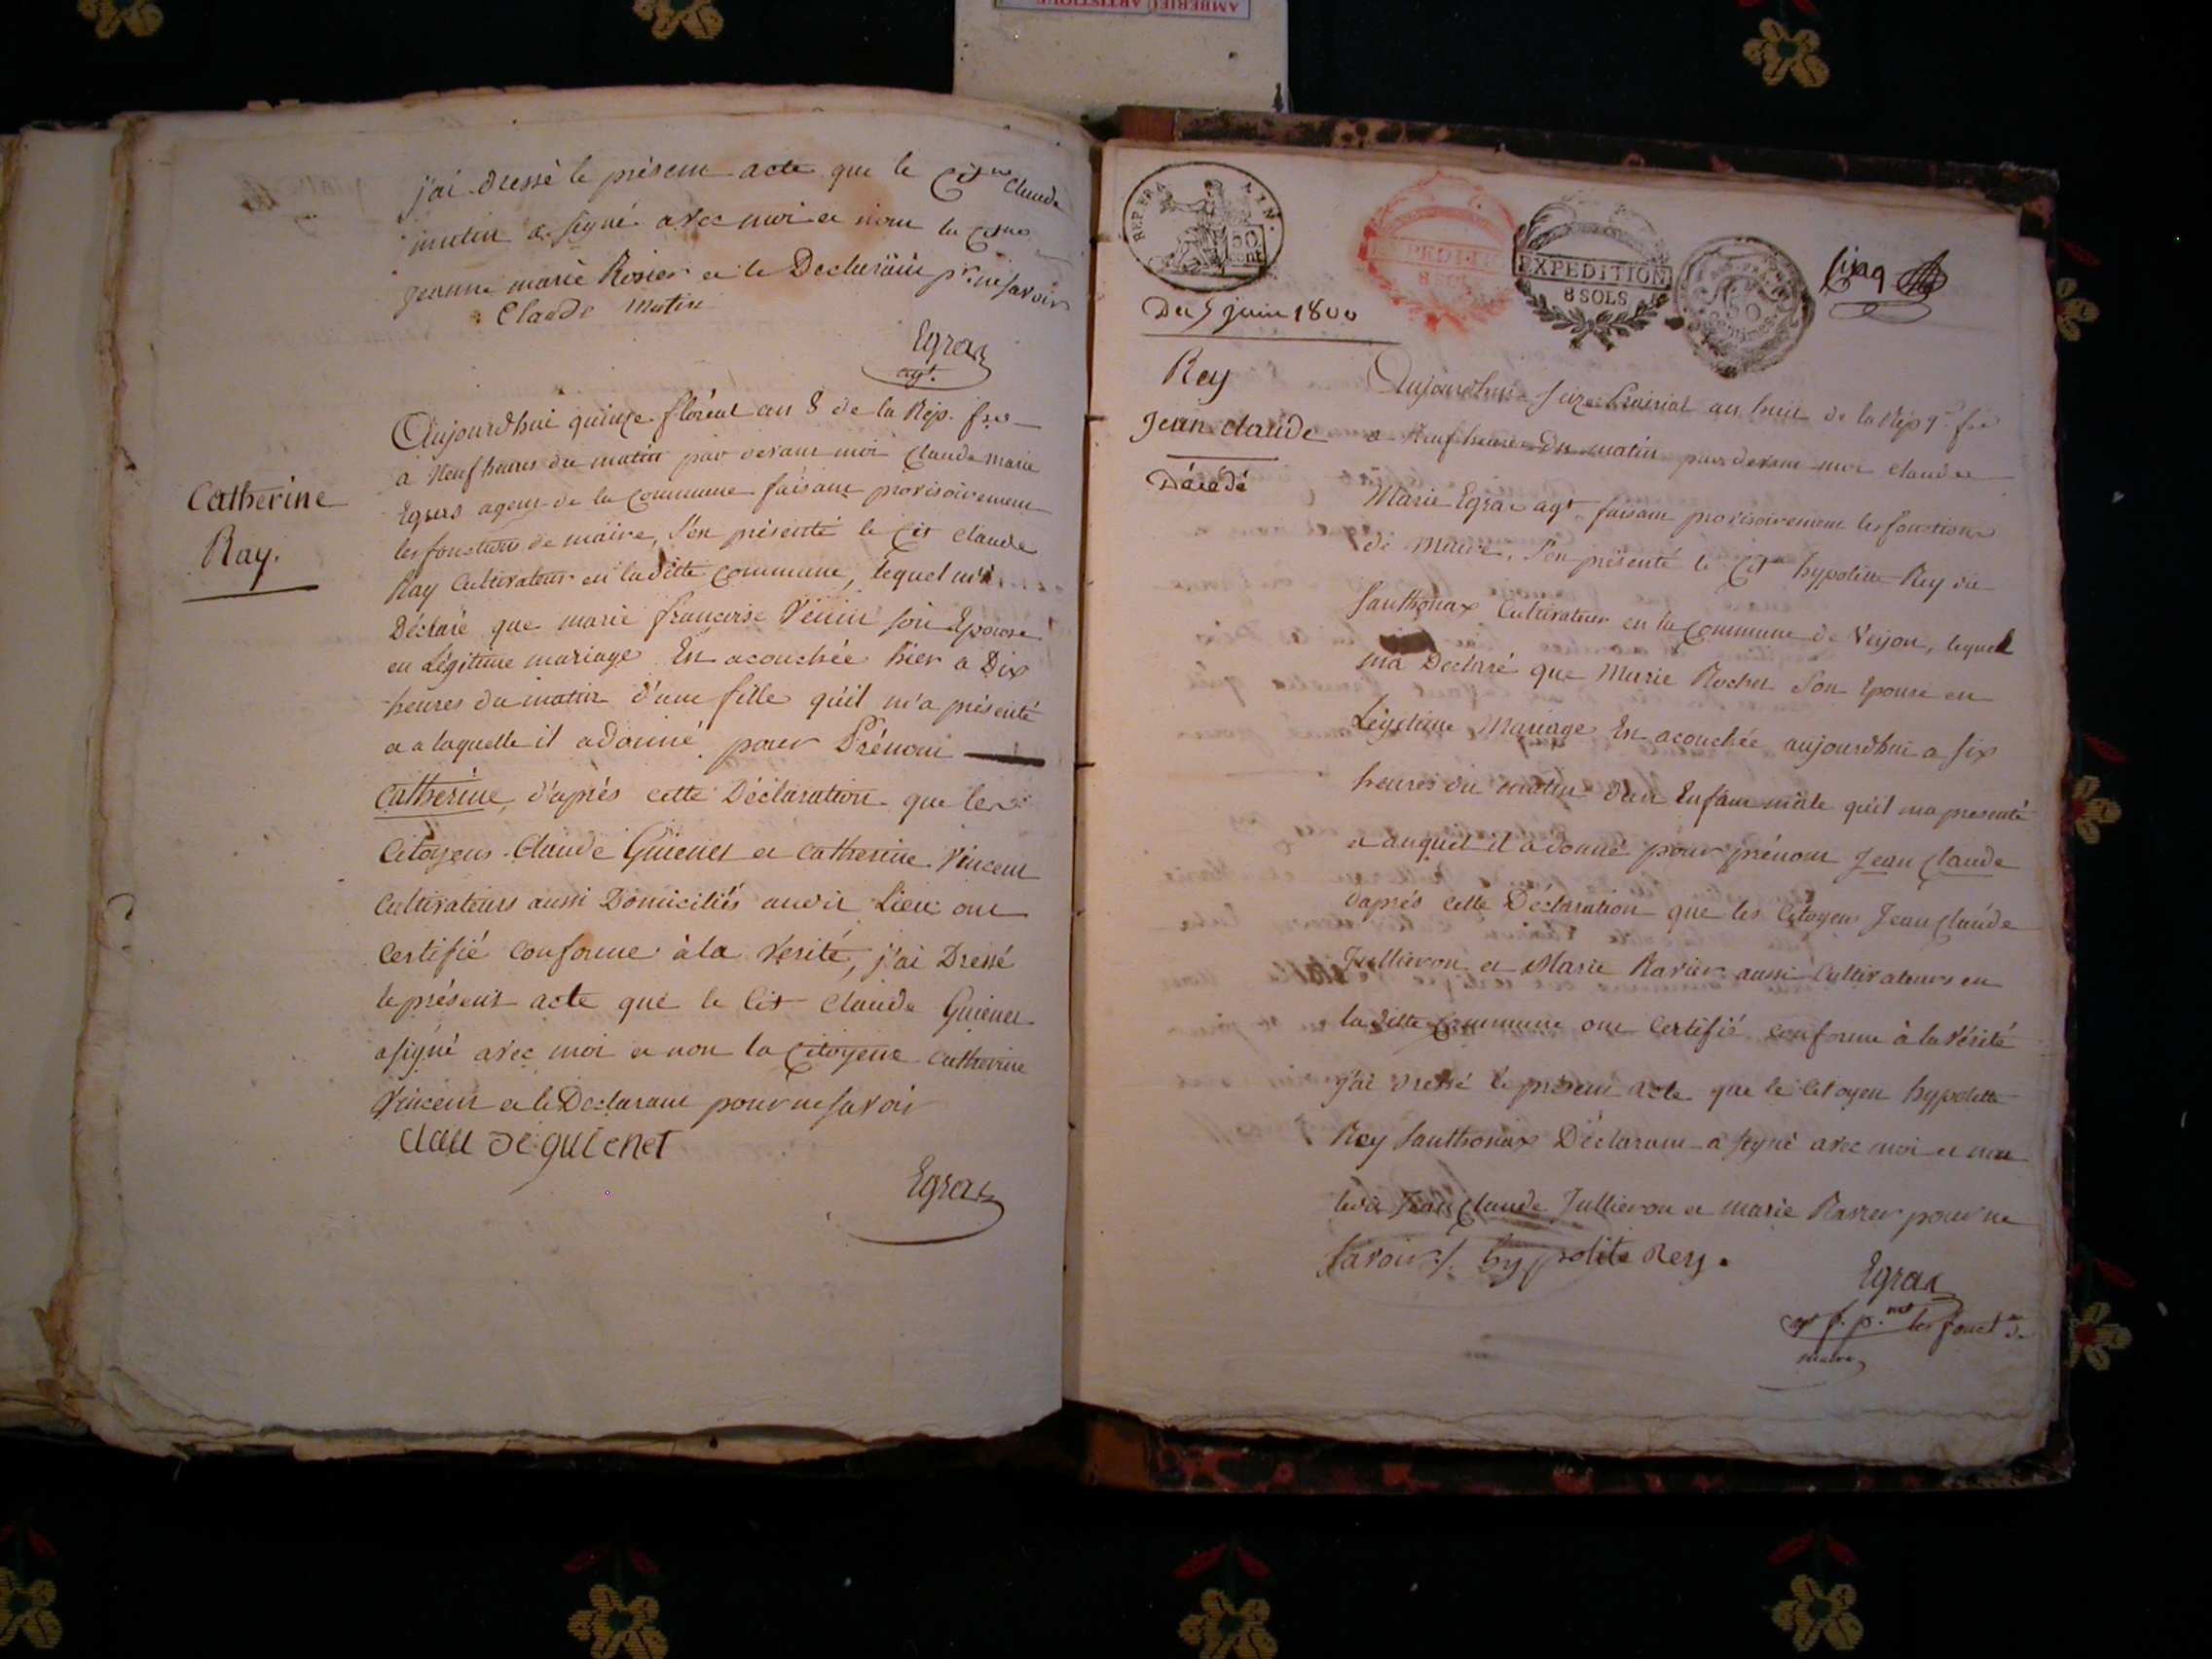 j'ai dressé le présent acte que le Cit.en Claude
mutin a signé avec moi et non la Citne
jeanne marie Rosier et le Declarant pr. ne savoir
Claude mutin
Egraz
agt.
Catherine
Ray.
Aujourdhui quinze floréal an 8 de la Rép. fse
à Neuf heures du matin par devant moi Claude Marie
Egraz agent de la Commune faisant provisoirement
les fonctions de maire, s'en présenté le Cit Claude
Ray Cultivateur en la ditte Commune, lequel m'a
Déclaré que marie françoise son Epouse
en Légitime mariage En acouchée hier a Dix
heures du matin d'une fille qu'il m'a présenté
et a laquelle il a donné pour Prénom
Catherine, d'aprés cette Déclaration que les
Citoyens Claude Guienet et Catherine Vincent
Cultivateurs aussi Domiciliés audit Lieu ont
Certifié Conforme à la Verité, j'ai Dressé
le présent acte que le Cit Claude Guienet
a signé avec moi et non la Citoyene Catherine
Vincent et le Declarant pour ne savoir
claude guienet
Egraz
AMBERIEU ARTISTIQUE
REP. FRA. 
50 cent
EXPEDITION
8 SOLS
EXPEDITION
8 SOLS
50
Centimes
cinq
Du 5 juin 1800
Rey
Jean claude
Décédé
Aujourdhui seize Prairial an huit de la Rép q. fse
a Neuf heures Du matin par devant moi claude
Marie Egraz agt. faisant provisoirement les fonctions
de Maire, s'en présenté le Cit.en hypolitte Rey dit
Santhonax Cultivateur en la Commune de Neyon, lequel
ma Declaré que Marie Rochet Son Epouse en
Légitime Mariage En acouchée aujourdhui a six
heures du matin d'un Enfant mâle qu'il ma presenté
et auquel il a donné pour prénom Jean Claude
d'aprés cette Déclaration que les Citoyens Jean Claude
Jullieron et Marie Ravier aussi Cultivateurs en
la ditte Commune ont Certifié conforme à la Vérité
j'ai dressé le présent acte que le Citoyen hypolitte
Rey Santhonax Déclarant a signé avec moi et non
lesdit Jean Claude Jullieron et marie Ravier pour ne
savoir ./. hyppolite Rey.
Egraz
agt f. p.mt les fonct.ons de
maire